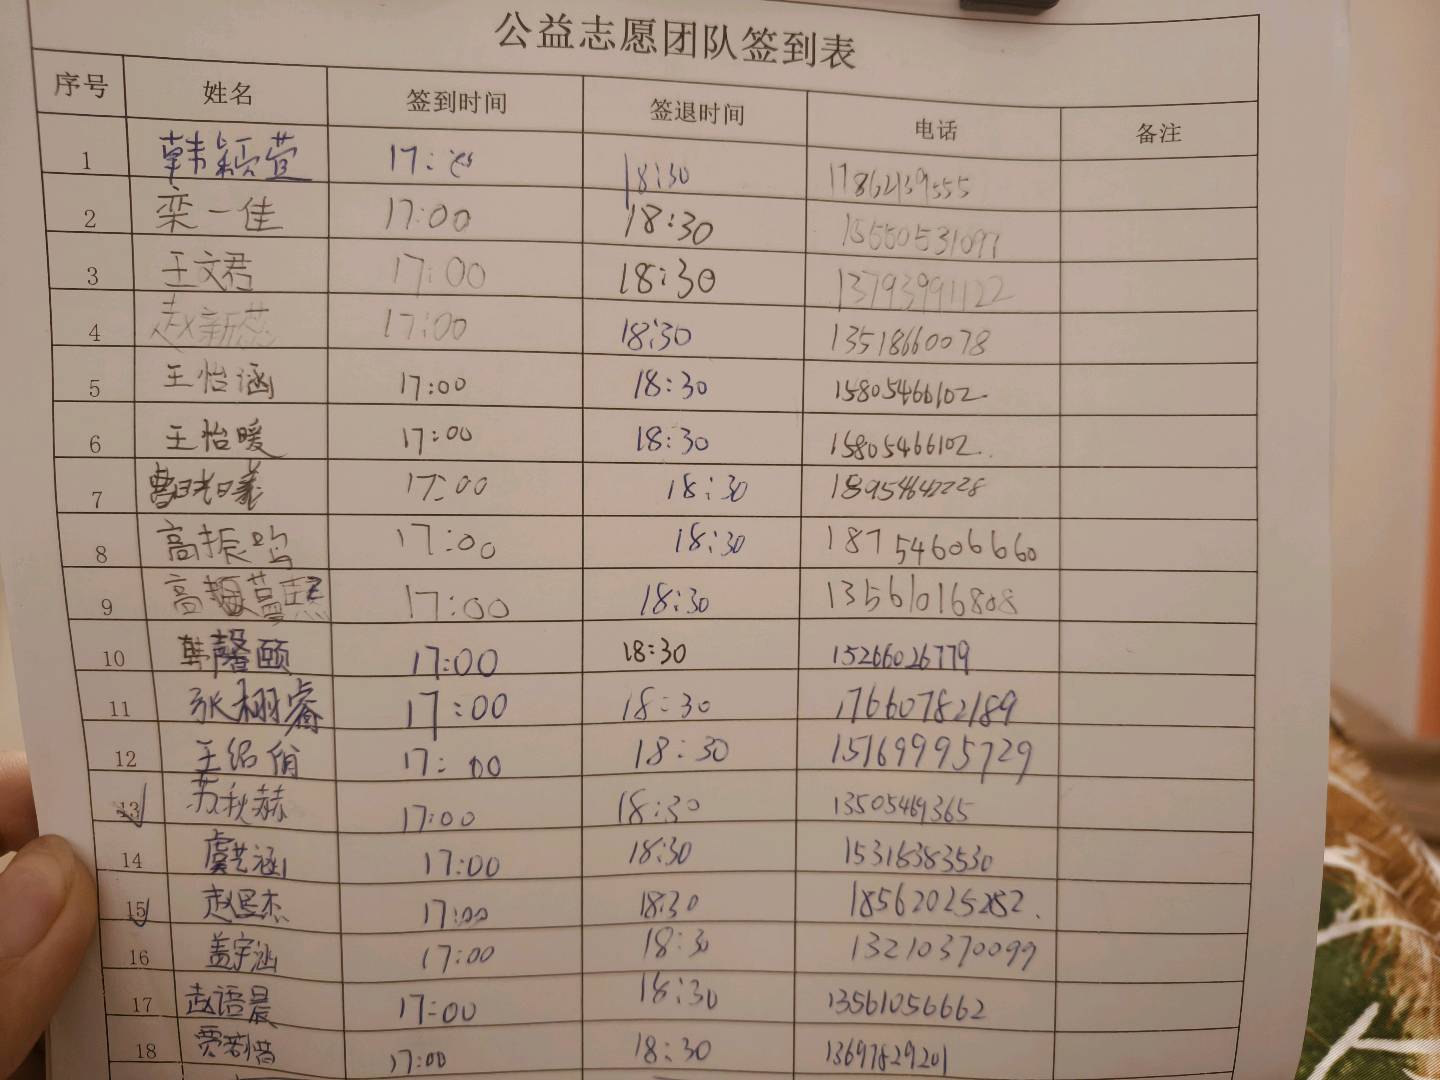 公益志愿团队签到表
序号 姓名 签到时间 签退时间 电话 备注
1 韩颖萱 17: 18:30 17862139555
2 栾一佳 17:00 18:30 15550531097
3 王文君 17:00 18:30 13793991122
4 赵新蕊 17:00 18:30 13518660078
5 王怡涵 17:00 18:30 15805466102
6 王怡暖 17:00 18:30 15805466102
7 曹晄曦 17:00 18:30
8 高振鸣 17:00 18:30 18754606660
9 高 17:00 18:30 13561016808
10 韩馨颐 17:00 18:30 15266026779
11 张栩睿 17:00 18:30 17660782189
12 王绍俏 17:00 18:30 15169995729
13 苏秋赫 17:00 18:30 13505469365
14 虞艺涵 17:00 18:30 15318383530
15 赵昱杰 17:00 18:30 18562025282.
16 盖宇涵 17:00 18:30 13210370099
17 赵语晨 17:00 18:30 13561056662
18 贾若惜 17:00 18:30 13697829201